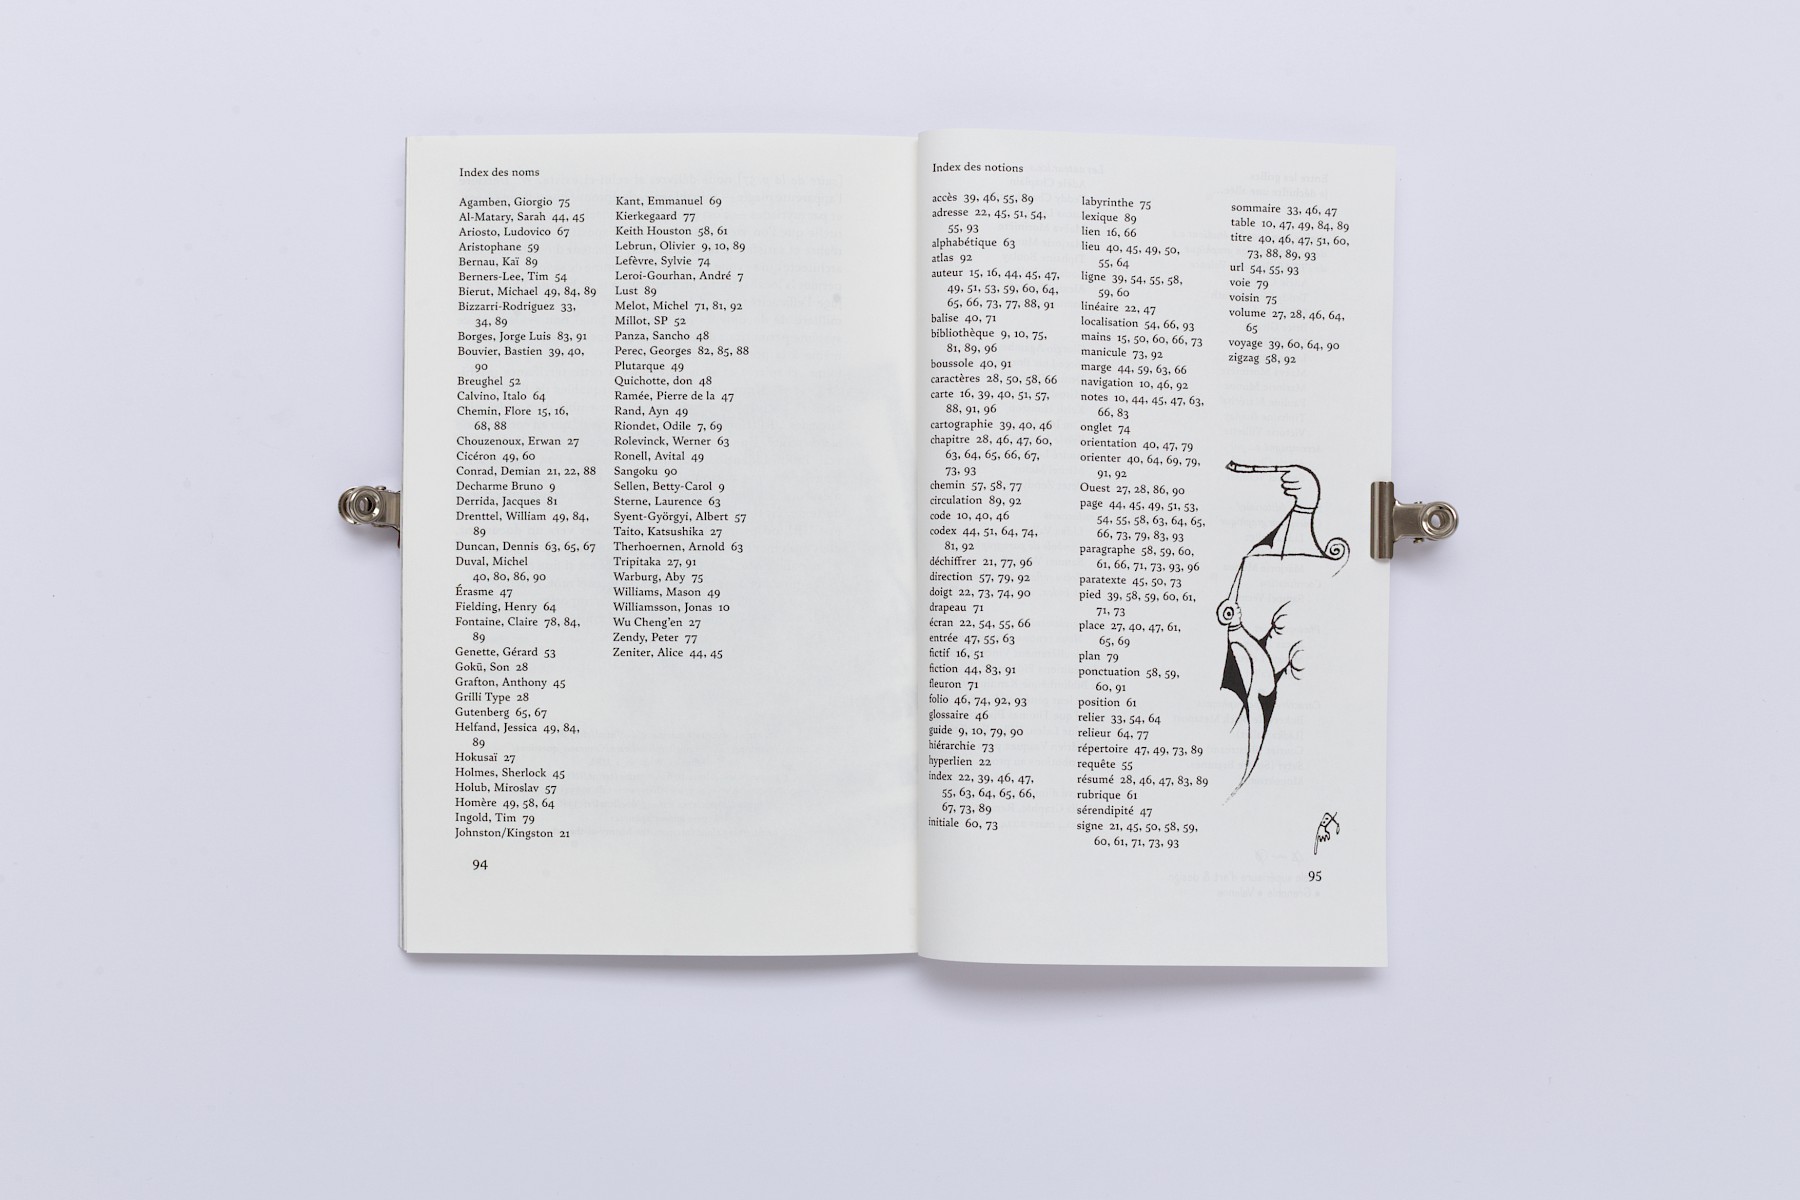 Index des noms
Agamben, Giorgio 75
Al-Matary, Sarah 44, 45
Ariosto, Ludovico 67
Aristophane 59
Bernau, Kaï 89
Berners-Lee, Tim 54
Bierut, Michael 49, 84, 89
Bizzarri-Rodriguez 33,
34, 89
Borges, Jorge Luis 83, 91
Bouvier, Bastien 39, 40,
90
Breughel 52
Calvino, Italo 64
Chemin, Flore 15, 16,
68, 88
Chouzenoux, Erwan 27
Cicéron 49, 60
Conrad, Demian 21, 22, 88
Decharme Bruno 9
Derrida, Jacques 81
Drenttel, William 49, 84,
89
Duncan, Dennis 63, 65, 67
Duval, Michel
40, 80, 86, 90
Érasme 47
Fielding, Henry 64
Fontaine, Claire 78, 84,
89
Genette, Gérard 53
Gokū, Son 28
Grafton, Anthony 45
Grilli Type 28
Gutenberg 65, 67
Helfand, Jessica 49, 84,
89
Hokusaï 27
Holmes, Sherlock 45
Holub, Miroslav 57
Homère 49, 58, 64
Ingold, Tim 79
Johnston/Kingston 21
Kant, Emmanuel 69
Kierkegaard 77
Keith Houston 58, 61
Lebrun, Olivier 9, 10, 89
Lefèvre, Sylvie 74
Leroi-Gourhan, André 7
Lust 89
Melot, Michel 71, 81, 92
Millot, SP 52
Panza, Sancho 48
Perec, Georges 82, 85, 88
Plutarque 49
Quichotte, don 48
Ramée, Pierre de la 47
Rand, Ayn 49
Riondet, Odile 7, 69
Rolevinck, Werner 63
Ronell, Avital 49
Sangoku 90
Sellen, Betty-Carol 9
Sterne, Laurence 63
Syent-Györgyi, Albert 57
Taito, Katsushika 27
Therhoernen, Arnold 63
Tripitaka 27, 91
Warburg, Aby 75
Williams, Mason 49
Williamsson, Jonas 10
Wu Cheng'en 27
Zendy, Peter 77
Zeniter, Alice 44, 45
94
Index des notions
accès 39, 46, 55, 89
adresse 22, 45, 51, 54,
55, 93
alphabétique 63
atlas 92
auteur 15, 16, 44, 45, 47,
49, 51, 53, 59, 60, 64,
65, 66, 73, 77, 88, 91
balise 40, 71
bibliothèque 9, 10, 75,
81, 89, 96
boussole 40, 91
caractères 28, 50, 58, 66
carte 16, 39, 40, 51, 57,
88, 91, 96
cartographie 39, 40, 46
chapitre 28, 46, 47, 60,
63, 64, 65, 66, 67,
73, 93
chemin 57, 58, 77
circulation 89, 92
code 10, 40, 46
codex 44, 51, 64, 74,
81, 92
déchiffrer 21, 77, 96
direction 57, 79, 92
doigt 22, 73, 74, 90
drapeau 71
écran 22, 54, 55, 66
entrée 47, 55, 63
fictif 16, 51
fiction 44, 83, 91
fleuron 71
folio 46, 74, 92, 93
glossaire 46
guide 9, 10, 79, 90
hiérarchie 73
hyperlien 22
index 22, 39, 46, 47,
55, 63, 64, 65, 66,
67, 73, 89
initiale 60, 73
labyrinthe 75
lexique 89
lien 16, 66
lieu 40, 45, 49, 50,
55, 64
ligne 39, 54, 55, 58,
59, 60
linéaire 22, 47
localisation 54, 66, 93
mains 15, 50, 60, 66, 73
manicule 73, 92
marge 44, 59, 63, 66
navigation 10, 46, 92
notes 10, 44, 45, 47, 63,
66, 83
onglet 74
orientation 40, 47, 79
orienter 40, 64, 69, 79,
91, 92
Ouest 27, 28, 86, 90
page 44, 45, 49, 51, 53,
54, 55, 58, 63, 64, 65,
66, 73, 79, 83, 93
paragraphe 58, 59, 60,
61, 66, 71, 73, 93, 96
paratexte 45, 50, 73
pied 39, 58, 59, 60, 61,
71, 73
place 27, 40, 47, 61,
65, 69
plan 79
ponctuation 58, 59,
60, 91
position 61
relier 33, 54, 64
relieur 64, 77
répertoire 47, 49, 73, 89
requête 55
résumé 28, 46, 47, 83, 89
rubrique 61
sérendipité 47
signe 21, 45, 50, 58, 59,
60, 61, 71, 73, 93
sommaire 33, 46, 47
table 10, 47, 49, 84, 89
titre 40, 46, 47, 51, 60,
73, 88, 89, 93
url 54, 55, 93
voie 79
voisin 75
volume 27, 28, 46, 64,
65
voyage 39, 60, 64, 90
zigzag 58, 92
95